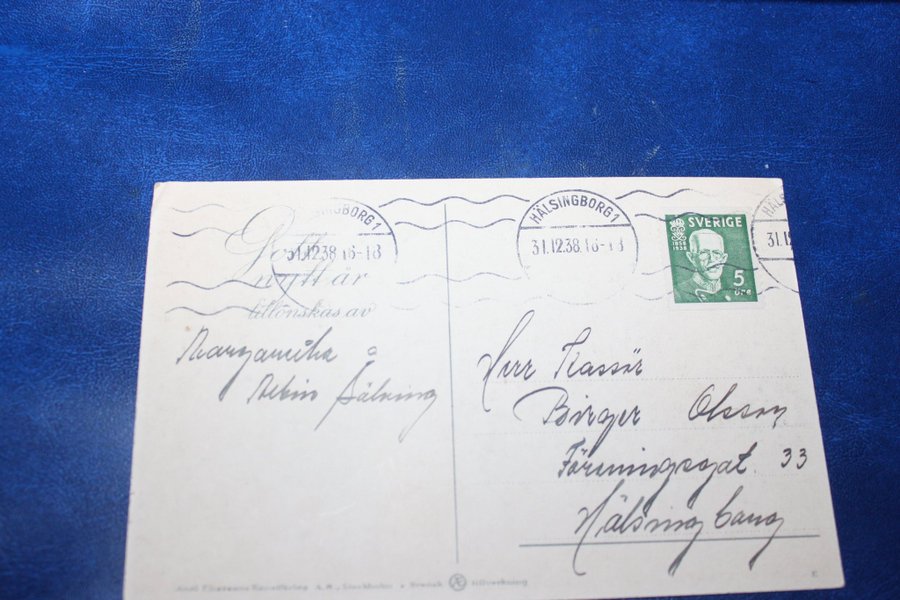 HÄLSINGBORG 1
31.12.38.16-18
Gott
nytt år
tillönskas av
Margaretha o
Albin Bälming
HÄLSINGBORG 1
31.12.38.16-18
SVERIGE
1858
1938
5
ÖRE
HÄLS
31.12
Herr Kassör
Birger Olsson
Föreningsgat. 33
Hälsingborg
Axel Eliassons Konstförlag A.B., Stockholm • Svensk tillverkning
E